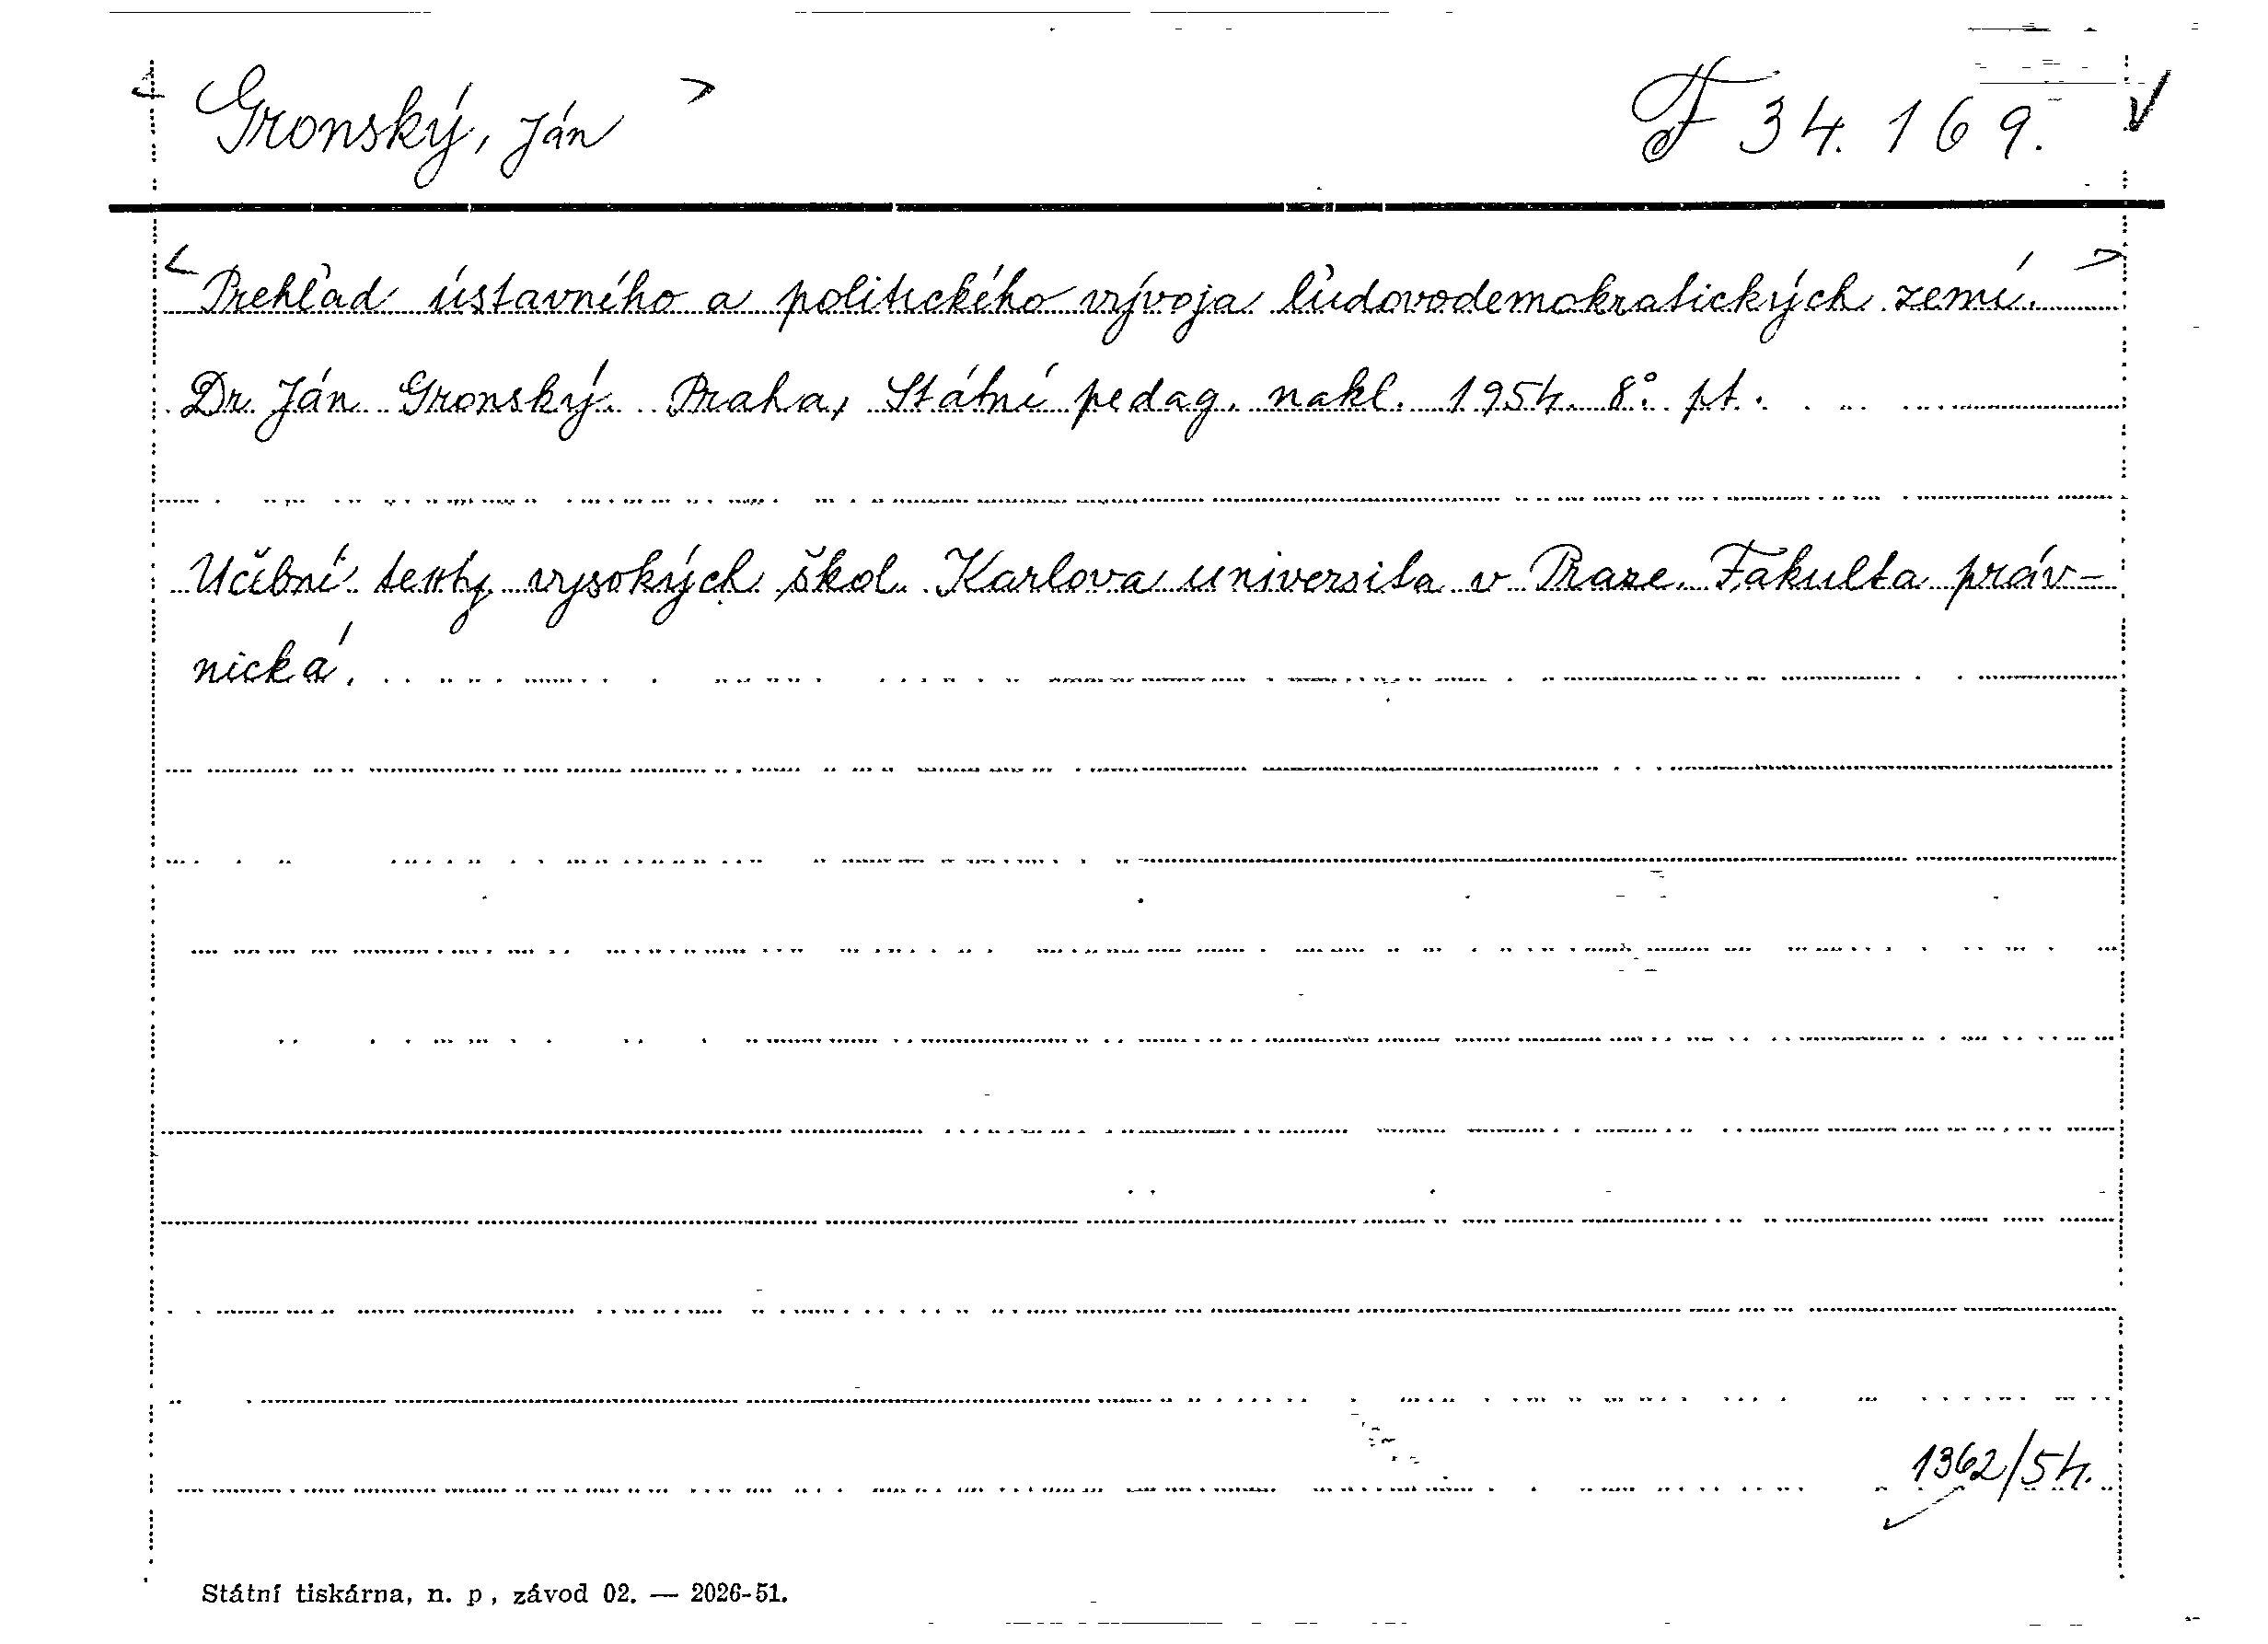 < Gronský, Ján > F 34.169. ✓
< Prehľad ústavního a politického vývoja ľudovodemokratických zemí. >
Dr. Ján Gronský. Praha, Státní pedag. nakl. 1954. 8°. pt.
Učební texty vysokých škol. Karlova universita v Praze. Fakulta práv-
nická.
1362/54.
Státní tiskárna, n. p., závod 02. — 2026-51.